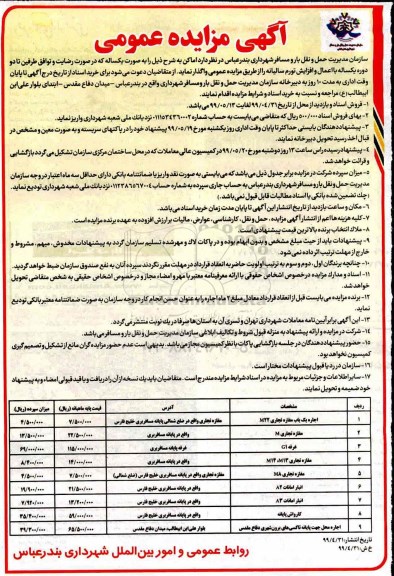 آگهی مزایده عمومی
سازمان مدیریت حمل و نقل بار و مسافر شهرداری بندرعباس در نظر دارد اماکن به شرح ذیل را به صورت یکساله که در صورت رضایت و توافق طرفین تا دو
دوره یکساله با اعمال و افزایش تورم سالیانه را از طریق مزایده عمومی واگذار نماید. از متقاضیان دعوت می‌شود برای خرید اسناد از تاریخ درج آگهی تا پایان
وقت اداری به مدت ۱۰ روز به دبیرخانه سازمان مدیریت حمل و نقل بار و مسافر شهرداری واقع در بندرعباس - میدان دفاع مقدس - ابتدای بلوار علی ابن
ابیطالب(ع) مراجعه و نسبت به خرید اسناد و شرایط مزایده اقدام نمایند.
۱- فروش اسناد و بازدید از محل از تاریخ ۹۹/۰۴/۳۱ لغایت ۹۹/۰۵/۱۳ می‌باشد.
۲- بهای فروش اسناد ۵۰۰/۰۰۰ ریال که متقاضی می‌بایست به حساب شماره نزد بانک ملی شعبه شهرداری واریز نماید.
۳- پیشنهاد دهندگان بایستی حداکثر تا پایان وقت اداری روز یکشنبه مورخ ۹۹/۰۵/۱۹ پیشنهاد خود را در پاکتهای سربسته و به صورت معین و مشخص در
قبال اخذ رسید تحویل دبیرخانه نمایند.
۴- پیشنهاد رسیده راس ساعت ۱۳ روز دوشنبه مورخ ۹۹/۰۵/۲۰ در کمیسیون عالی معاملات که در محل ساختمان مرکزی سازمان تشکیل می‌گردد بازگشایی
و قرائت خواهد شد.
۵- میزان سپرده شرکت در مزایده برابر جدول ذیل می‌باشد که می‌بایستی به صورت نقد واریز یا ضمانتنامه بانکی دارای حداقل سه ماه اعتبار در وجه سازمان
مدیریت حمل و نقل بار و مسافر شهرداری بندرعباس به حساب جاری سپرده به شماره حساب نزد بانک ملی شعبه شهرداری تودیع نماید.
(چک تضمین شده بانکی یا اسناد مطالبات قابل قبول نمی‌باشد.)
۶- مکان و ساعت بازدید از تاریخ انتشار این آگهی تا پایان مدت زمان خرید اسناد می‌باشد.
۷- کلیه هزینه‌ها اعم از انتشار آگهی مزایده، حمل و نقل، کارشناسی، عوارض، مالیات بر ارزش افزوده به عهده برنده مزایده است.
۸- ملاک انتخاب برنده بالاترین قیمت پیشنهادی است.
۹- پیشنهادات باید از حیث مبلغ مشخص و بدون ابهام بوده و در پاکات لاک و مهر شده تسلیم سازمان گردد به پیشنهادات مخدوش، مبهم، مشروط و
خارج از مهلت ترتیب اثر داده نخواهد شد.
۱۰- چنانچه برندگان اول، دوم و سوم به ترتیب اولویت حاضر به انعقاد قرارداد در مهلت مقرر نگردند سپرده آنان به نفع صندوق سازمان ضبط خواهد گردید.
۱۱- اسناد و مدارک مزایده درخصوص اشخاص حقوقی با ارائه معرفینامه معتبر با مهر و امضاء مجاز و درخصوص اشخاص حقیقی به شخص متقاضی تحویل
خواهد شد.
۱۲- برنده مزایده می‌بایست قبل از انعقاد قرارداد معادل مبلغ ۲ ماه اجاره را به عنوان حسن انجام کار در وجه سازمان به صورت ضمانتنامه معتبر بانکی تودیع
نماید.
۱۳- این آگهی برابر آیین نامه معاملات شهرداری تهران و تسری آن به استان‌ها صرفا در یک نوبت منتشر می‌گردد.
۱۴- شرکت در مزایده و ارائه پیشنهاد به منزله قبول شروط و تکالیف ابلاغی سازمان مدیریت حمل و نقل بار و مسافر می‌باشد.
۱۵- حضور پیشنهاد دهندگان در جلسه بازگشایی پاکات با نظر کمیسیون مجاز می‌باشد. بدیهی است عدم حضور مزایده گران مانع از تشکیل و تصمیم گیری
کمیسیون نخواهد بود.
۱۶- سازمان در رد یا قبول پیشنهادات مختار است.
۱۷- سایر اطلاعات و جزئیات مربوط به مزایده در اسناد شرایط مزایده مندرج است. متقاضیان باید یک نسخه از آن را دریافت و با قید قبولی امضاء و به پیشنهاد
خود ضمیمه و تحویل نمایند.
ردیف مشخصات آدرس قیمت پایه ماهیانه (ریال) میزان سپرده (ریال)
۱ اجاره یک باب مغازه تجاری M۲۲ مغازه تجاری واقع در ضلع شمالی پایانه مسافربری خلیج فارس ۷/۵۰۰/۰۰۰ ۴/۵۰۰/۰۰۰
۲ مغازه تجاری واقع در پایانه مسافربری ۲۲/۵۰۰/۰۰۰ ۱۳/۵۰۰/۰۰۰
۳ غرفه G۱ غرفه پایانه مسافربری ۱۱۵/۰۰۰/۰۰۰ ۶۹/۰۰۰/۰۰۰
۴ مغازه تجاری M۱۳ و M۱۴ واقع در پایانه مسافربری ۱۴/۰۰۰/۰۰۰ ۸/۴۰۰/۰۰۰
۵ مغازه تجاری M۸ مغازه تجاری واقع در پایانه مسافربری خلیج فارس (ضلع شمالی) ۷/۵۰۰/۰۰۰ ۴/۵۰۰/۰۰۰
۶ انبار امانات A۲ واقع در پایانه مسافربری خلیج فارس
۷ انبار امانات A۳ واقع در پایانه مسافربری خلیج فارس
۸ کارواش پایانه واقع در پایانه مسافربری خلیج فارس ۵۹/۰۰۰/۰۰۰ ۳۵/۴۰۰/۰۰۰
۹ اجاره محل جهت پایانه تاکسی‌های برون‌شهری دفاع مقدس بلوار علی ابن ابیطالب، میدان دفاع مقدس ۶۵/۵۰۰/۰۰۰ ۳۹/۳۰۰/۰۰۰
تاریخ انتشار: ۹۹/۴/۳۱
خ ش: ۹۹/۴/۳۱
روابط عمومی و امور بین الملل شهرداری بندرعباس